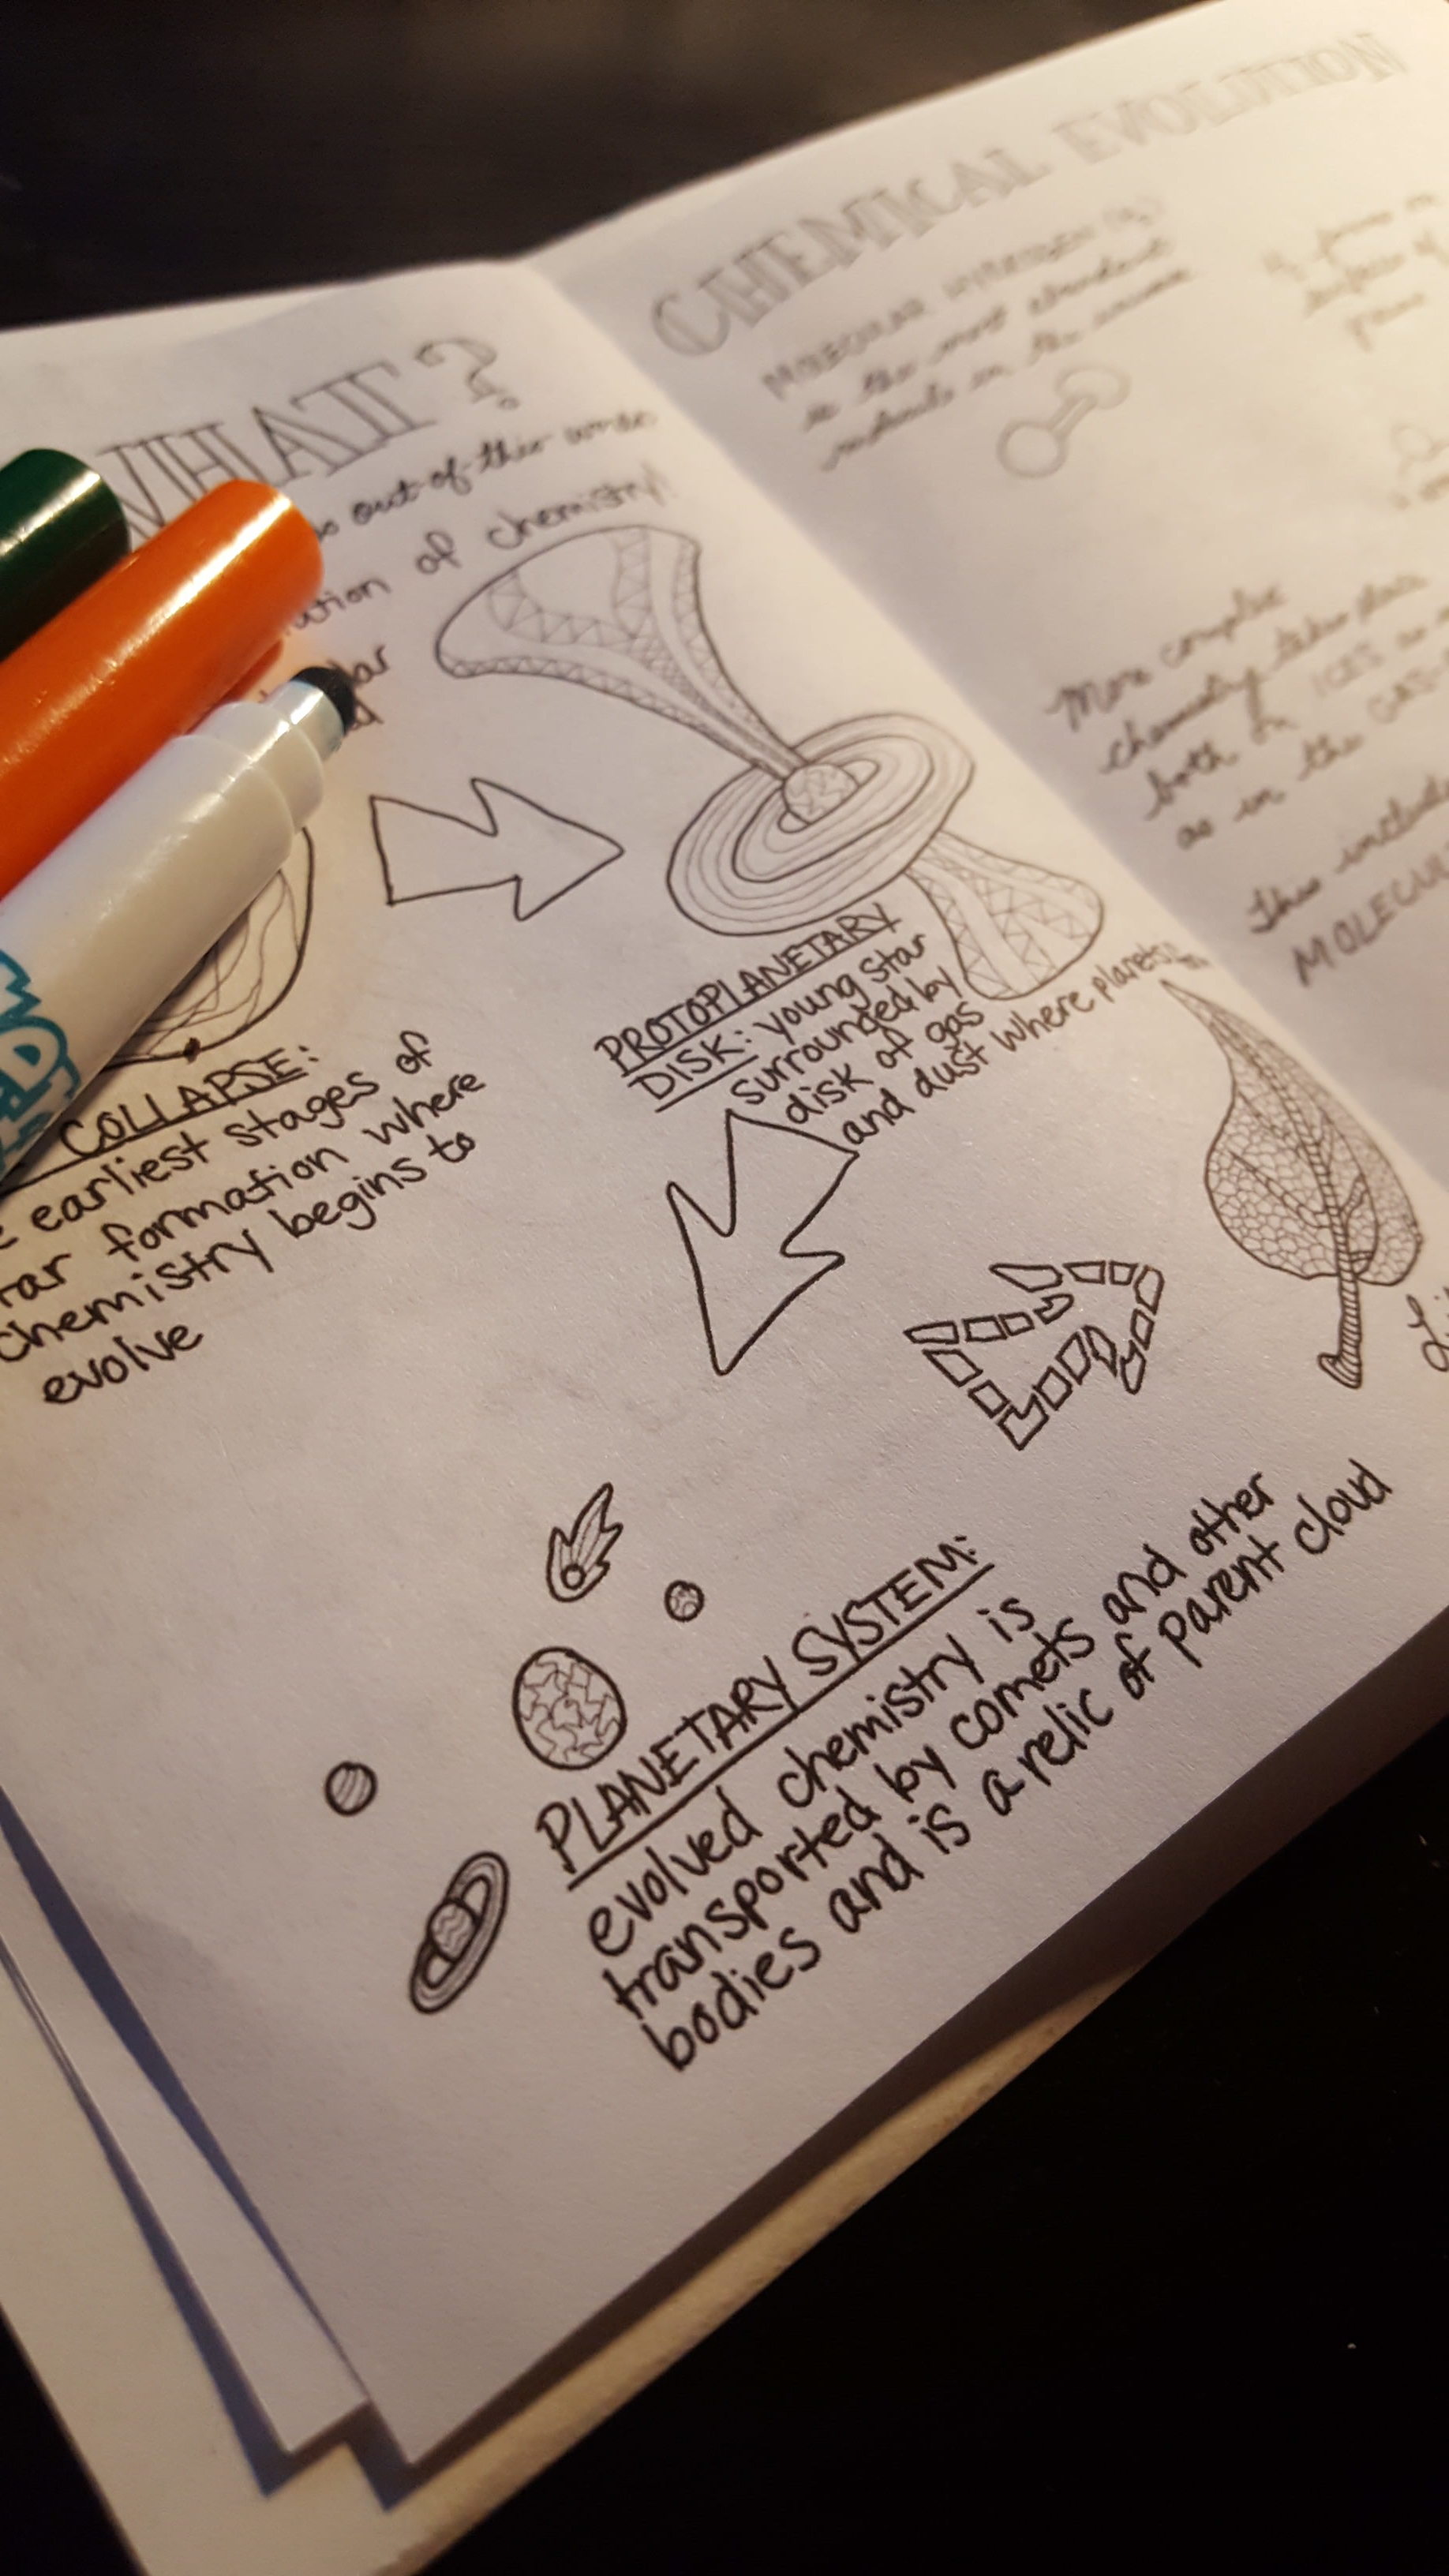 WHAT?
out-of-this-world
of chemistry!
COLLAPSE:
earliest stages of
formation where
chemistry begins to
evolve
PROTOPLANETARY
DISK: young star
surrounded by
disk of gas
and dust where planets
PLANETARY SYSTEM:
evolved chemistry is
transported by comets and other
bodies and is a relic of parent cloud
CHEMICAL EVOLUTION
MOLECULAR HYDROGEN (H₂)
is the most abundant
molecule in the universe
More complex
chemistry takes place
both in ICES as
as in the GAS-
This includes